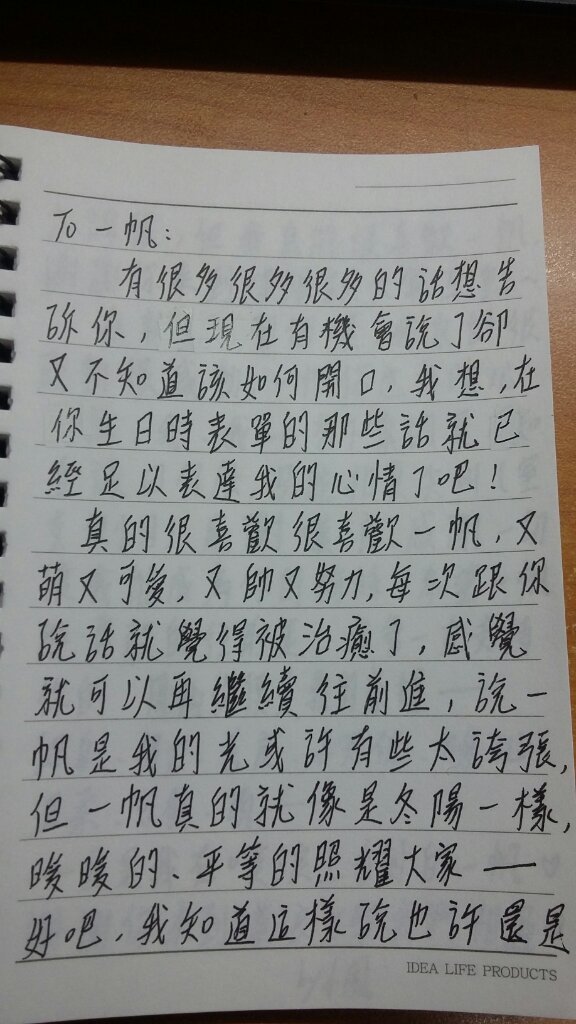 To 一帆：
有很多很多很多的話想告
訴你，但現在有機會說了卻
又不知道該如何開口，我想，在
你生日時表單的那些話就已
經足以表達我的心情了吧！
真的很喜歡很喜歡一帆，又
萌又可愛，又帥又努力，每次跟你
說話就覺得被治癒了，感覺
就可以再繼續往前進，說一
帆是我的光或許有些太誇張，
但一帆真的就像是冬陽一樣，
暖暖的、平等的照耀大家——
好吧，我知道這樣說也許還是
IDEA LIFE PRODUCTS